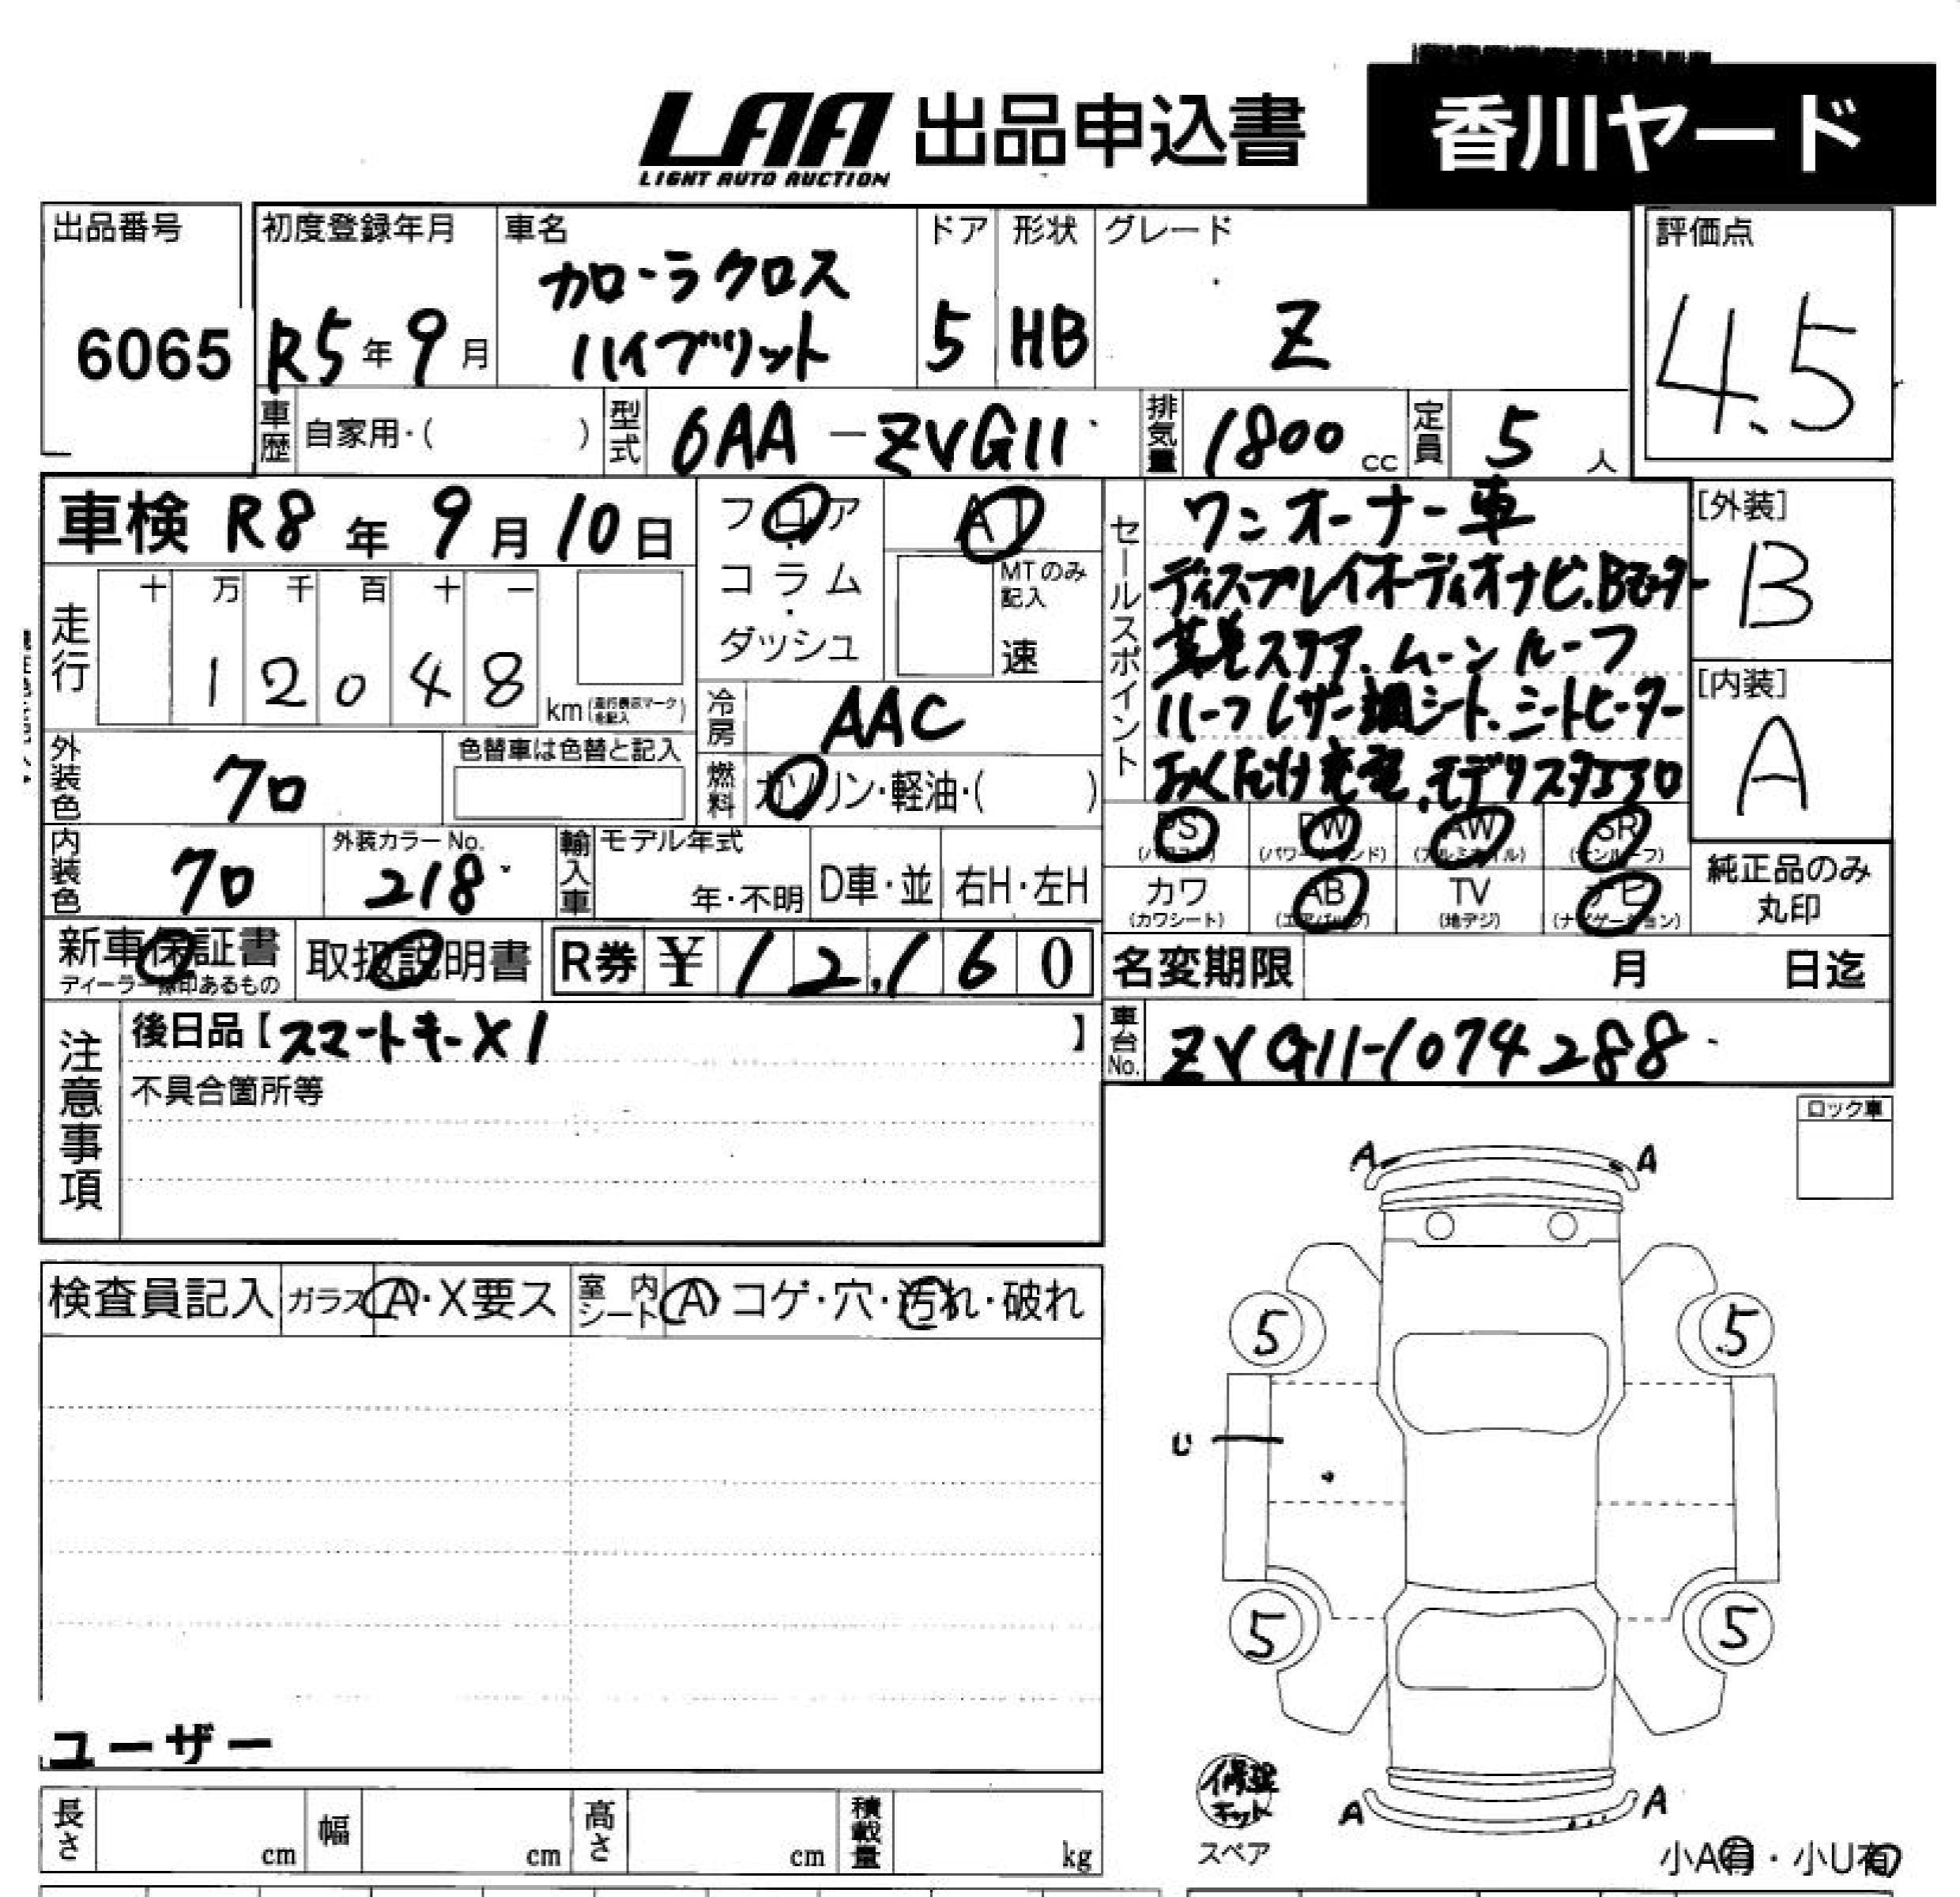 LAA 出品申込書 香川ヤード
LIGHT AUTO AUCTION
出品番号 初度登録年月 車名 ドア 形状 グレード 評価点
カローラクロス
6065 R5年9月 ハイブリット 5 HB Z 4.5
車歴 自家用・( ) 型式 6AA-ZVG11 排気量 1800 cc 定員 5 人
車検 R8年9月10日
フロア
コラム
ダッシュ
AT
MTのみ記入
速
走行 十 万 千 百 十 一
1 2 0 4 8 km
冷房 AAC
外装色 クロ 色替車は色替と記入
燃料 ガソリン・軽油・( )
セールスポイント
ワンオーナー車
ディスプレイオーディオナビ.Bモニター
革巻ステア.ムーンルーフ
ハーフレザー調シート.シートヒーター
おくだけ充電.モデリスタエアロ
[外装]
B
[内装]
A
内装色 クロ 外装カラーNo. 218 輸入車 モデル年式 年・不明 D車・並 右H・左H
PS PW (パワーウインド) AW (アルミホイル) SR (サンルーフ)
カワ (カワシート) AB (エアバッグ) TV (地デジ) ナビ (ナビゲーション)
純正品のみ
丸印
新車保証書 取扱説明書 R券 ¥12,160
ディーラー捺印あるもの
名変期限 月 日迄
注意事項
後日品【スマートキーX1 】
不具合箇所等
車台No. ZVG11-1074288
ロック車
検査員記入 ガラス A・X要ス 室内シート A コゲ・穴・汚れ・破れ
A A
5 5
U
5 5
ユーザー
修理キット
スペア
A A
小A有・小U有
長さ cm 幅 cm 高さ cm 積載量 kg